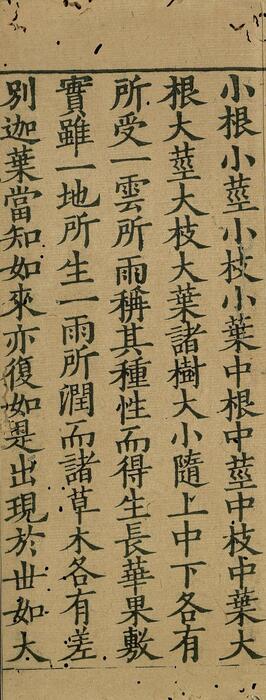 小根小莖小枝小葉中根中莖中枝中葉大
根大莖大枝大葉諸樹大小隨上中下各有
所受一雲所雨稱其種性而得生長華果敷
實雖一地所生一雨所潤而諸草木各有差
別迦葉當知如來亦復如是出現於世如大